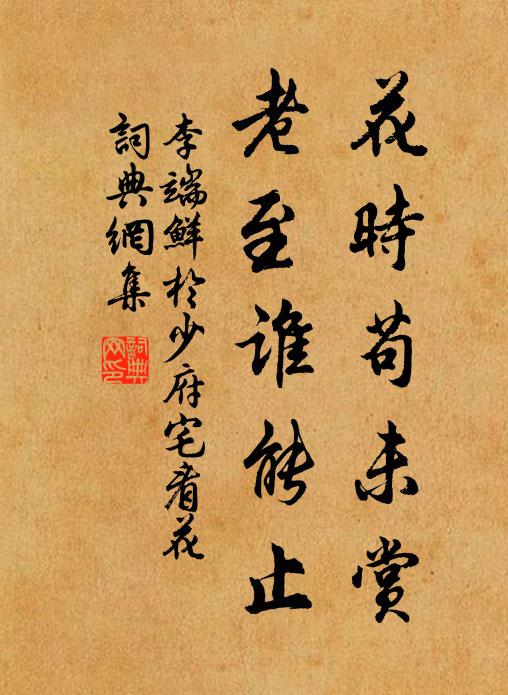 花時苟未賞
老至誰能止
李端鮮於少府宅看花
詞典網集
詞典網印